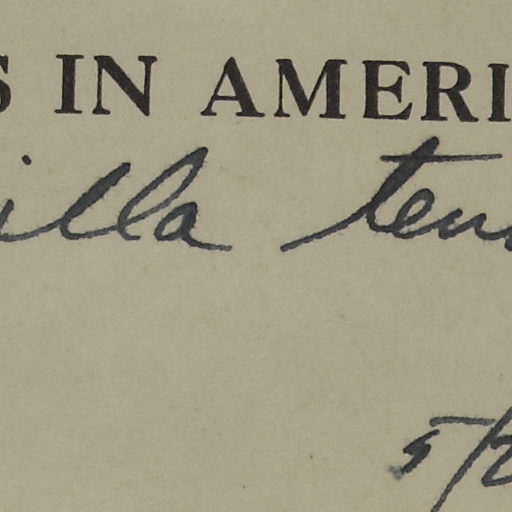 S IN AMERI
illa ten
5/2